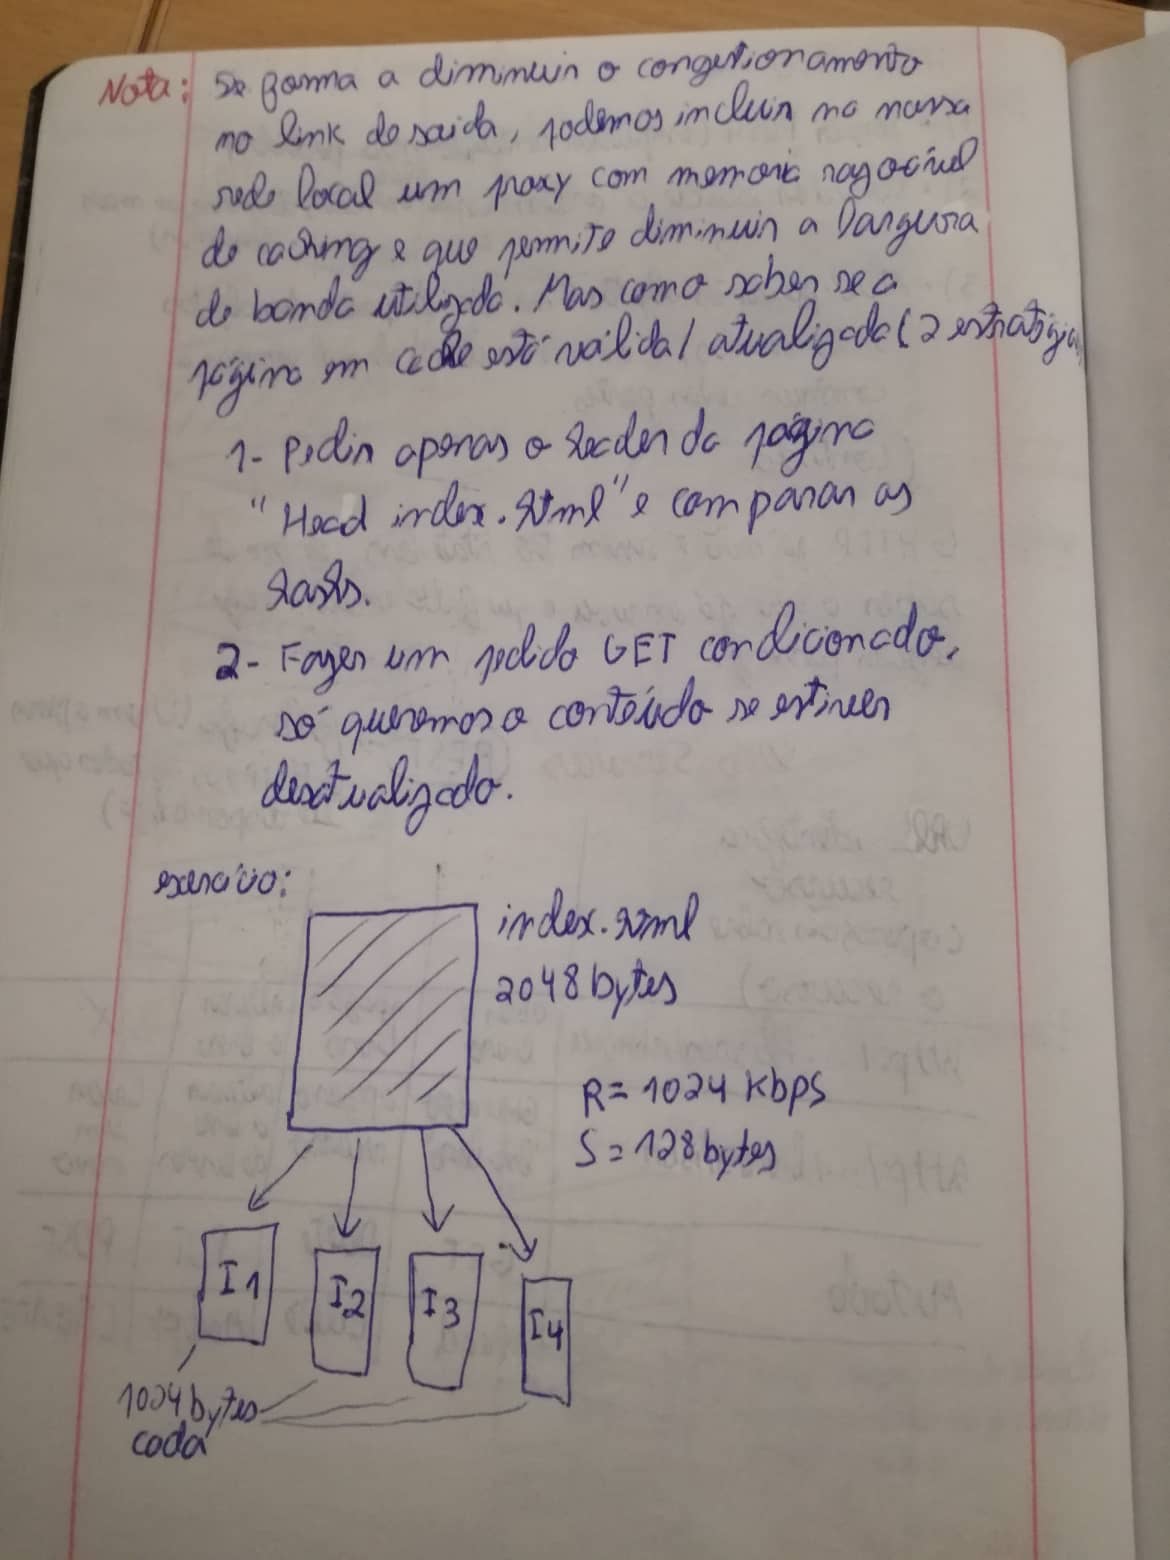 Nota: De forma a diminuir o congestionamento
no link de saida, podemos incluir na nossa
rede local um proxy com memoria razoável
de caching e que permite diminuir a largura
de banda utilizada. Mas como saber se a
página em cache está válida/atualizada (2 estratégias)
1- Pedir apenas o header da página
"Head index.html" e comparar as
hashs.
2- Fazer um pedido GET condicionado,
só queremos o conteúdo se estiver
desatualizado.
exercício:
index.html
2048 bytes
R=1024 kbps
S=128 bytes
I1
I2
I3
I4
1024 bytes
cada